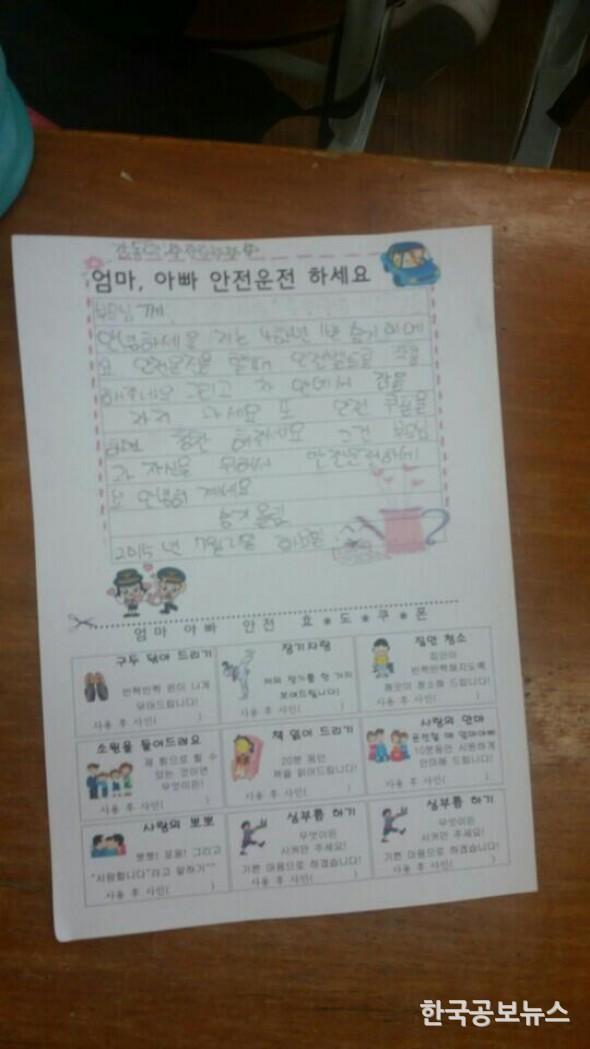 엄마, 아빠 안전운전 하세요
부모님께
안녕하세요 저는 4학년 1반
요 안전운전을 할때 안전벨트를 꼭
해주세요 그리고 차 안에서
마세요 또 안전
하세요 그건 부모님
과 자신을 위해서 안전운전하세
요 안녕히 계세요
올림
2015년 7월 2일
엄마 아빠 안전 효★도★쿠★폰
구두 닦아 드리기
반짝반짝 윤이 나게
닦아드립니다!
사용 후 사인( )
장기자랑
저의 장기를 한 가지
보여드립니다!
사용 후 사인( )
집안 청소
집안이
반짝반짝해지도록
깨끗이 청소해 드립니다!
사용 후 사인( )
소원을 들어드려요
제 힘으로 할 수
있는 것이면
무엇이든!
사용 후 사인( )
책 읽어 드리기
20분 동안
책을 읽어드립니다!
사용 후 사인( )
사랑의 안마
운전할 때 엄마아빠
10분동안 시원하게
안마해 드립니다!
사용 후 사인( )
사랑의 뽀뽀
뽀뽀! 포옹! 그리고
"사랑합니다"라고 말하기~~
사용 후 사인( )
심부름 하기
무엇이든
시켜만 주세요!
기쁜 마음으로 하겠습니다!
사용 후 사인( )
심부름 하기
무엇이든
시켜만 주세요!
기쁜 마음으로 하겠습니다!
사용 후 사인( )
한국공보뉴스